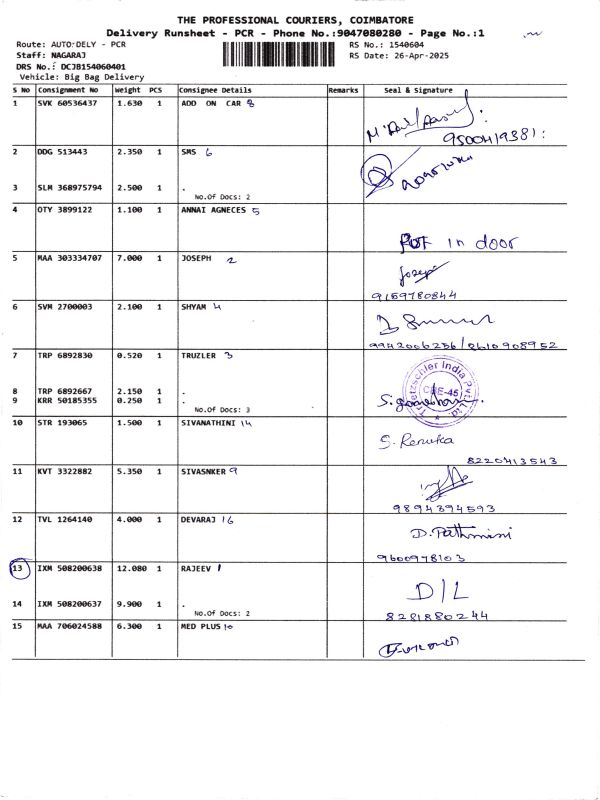 THE PROFESSIONAL COURIERS, COIMBATORE
Delivery Runsheet - PCR - Phone No.:9047080280 - Page No.:1
Route: AUTO:DELY - PCR
RS No.: 1540604
Staff: NAGARAJ
RS Date: 26-Apr-2025
DRS No.: DCJB154060401
Vehicle: Big Bag Delivery
S No Consignment No Weight PCS Consignee Details Remarks Seal & Signature
1 SVK 60536437 1.630 1 ADD ON CAR 8
9500419381
2 DDG 513443 2.350 1 SMS 6
3 SLM 368975794 2.500 1 .
No.Of Docs: 2
4 OTY 3899122 1.100 1 ANNAI AGNECES 5
Put in door
5 MAA 303334707 7.000 1 JOSEPH 2
Joseph
9159780844
6 SVM 2700003 2.100 1 SHYAM 4
9942006256 / 8610908952
7 TRP 6892830 0.520 1 TRUZLER 3
Truetzschler India Pvt. Ltd.
CBE-45
8 TRP 6892667 2.150 1 .
9 KRR 50185355 0.250 1 .
No.Of Docs: 3
10 STR 193065 1.500 1 SIVANATHINI 14
S. Renuka
8220413543
11 KVT 3322882 5.350 1 SIVASNKER 9
9894394593
12 TVL 1264140 4.000 1 DEVARAJ 16
D. Pathmini
9600978103
13 IXM 508200638 12.080 1 RAJEEV 1
D/L
14 IXM 508200637 9.900 1 .
No.Of Docs: 2
8281880244
15 MAA 706024588 6.300 1 MED PLUS 10